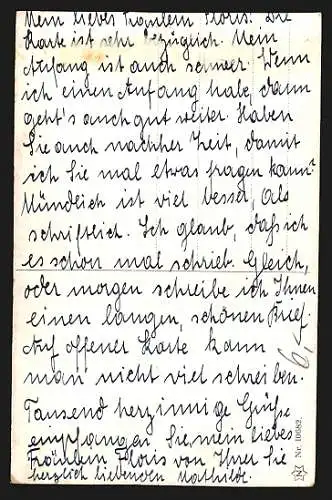 Mein liebes Fräulein Floris! Die
Karte ist sehr bezüglich. Mein
Anfang ist auch schwer. Wenn
ich einen Anfang habe, dann
geht's auch gut weiter. Haben
Sie auch nachher Zeit, damit
ich Sie mal etwas fragen kann?
Mündlich ist viel besser, als
schriftlich. Ich glaub, daß ich
es schon mal schrieb. Gleich,
oder morgen schreibe ich Ihnen
einen langen, schönen Brief.
Auf offener Karte kann
man nicht viel schreiben.
Tausend herzinnige Grüße
empfangen Sie, mein liebes
Fräulein Floris von Ihrer Sie
herzlich liebenden Mathilde.
6,-
Nr. 10682.